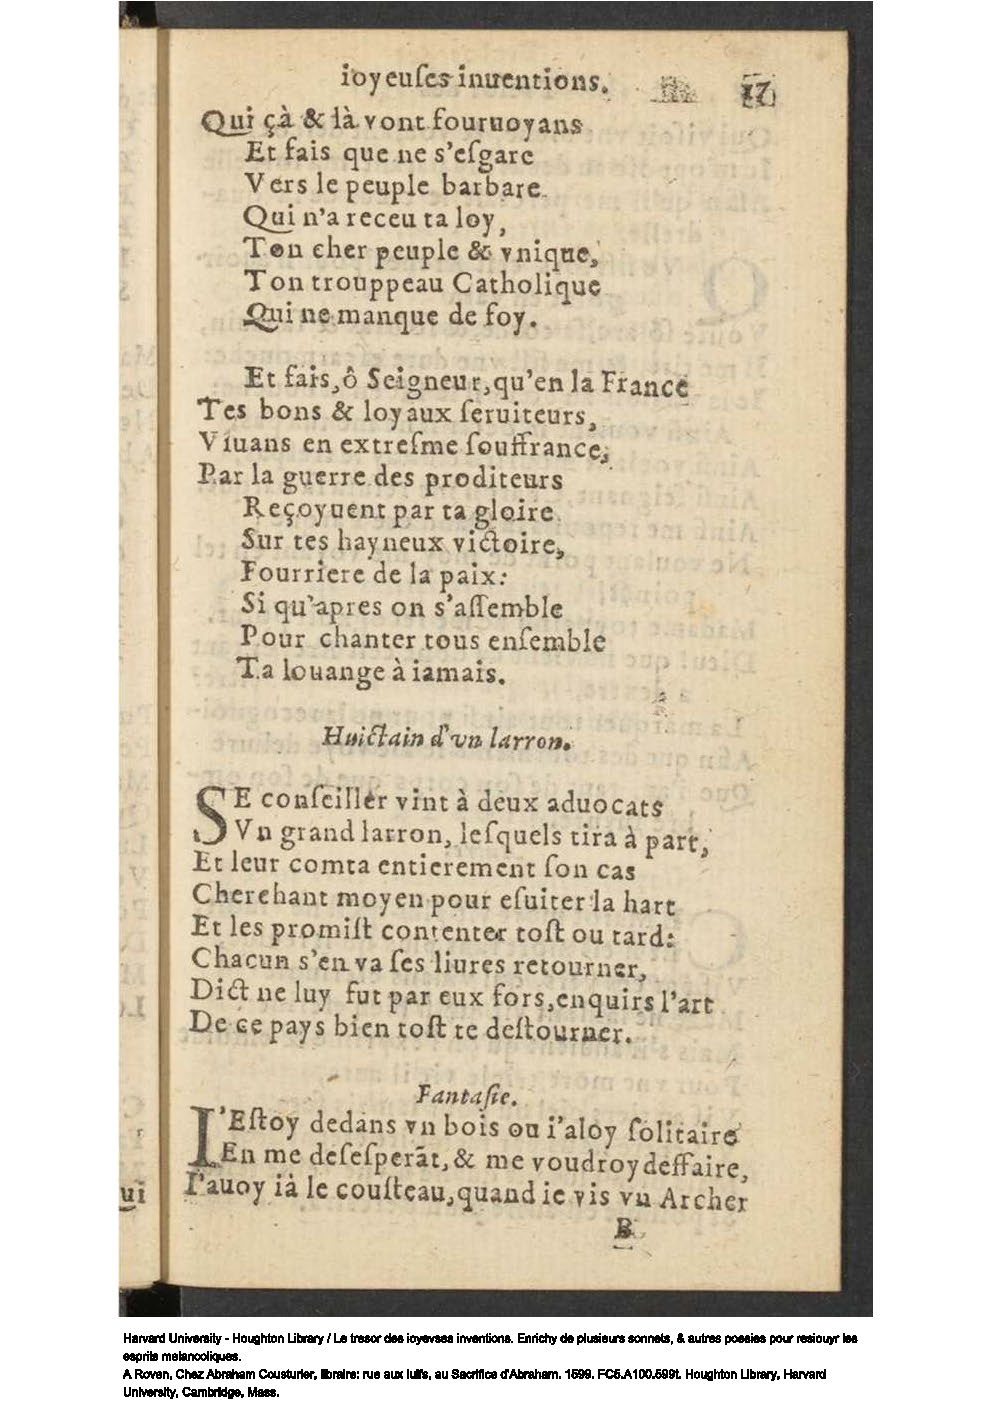 ioyeuſes inuentions. 17
Qui çà & là vont fouruoyans
Et fais que ne s'eſgare
Vers le peuple barbare
Qui n'a receu ta loy,
Ton cher peuple & vnique,
Ton trouppeau Catholique
Qui ne manque de foy.
Et fais, ô Seigneur, qu'en la France
Tes bons & loyaux ſeruiteurs,
Viuans en extreſme ſouffrance,
Par la guerre des proditeurs
Reçoyuent par ta gloire
Sur tes hayneux victoire,
Fourriere de la paix:
Si qu'apres on s'aſſemble
Pour chanter tous enſemble
Ta louange à iamais.
Huictain d'vn larron.
SE conſeiller vint à deux aduocats
Vn grand larron, leſquels tira à part,
Et leur comta entierement ſon cas
Cherchant moyen pour eſuiter la hart
Et les promiſt contenter toſt ou tard:
Chacun s'en va ſes liures retourner,
Dict ne luy fut par eux fors, enquirs l'art
De ce pays bien toſt te deſtourner.
Fantaſie.
I'Eſtoy dedans vn bois ou i'aloy ſolitaire
En me deſeſperãt, & me voudroy deffaire,
I'auoy ià le couſteau, quand ie vis vn Archer
B
ui
Harvard University - Houghton Library / Le tresor des ioyevses inventions. Enrichy de plusieurs sonnets, & autres poesies pour resiouyr les
esprits melancoliques.
A Roven, Chez Abraham Cousturier, libraire: rue aux Iuifs, au Sacrifice d'Abraham. 1599. FC5.A100.599t. Houghton Library, Harvard
University, Cambridge, Mass.